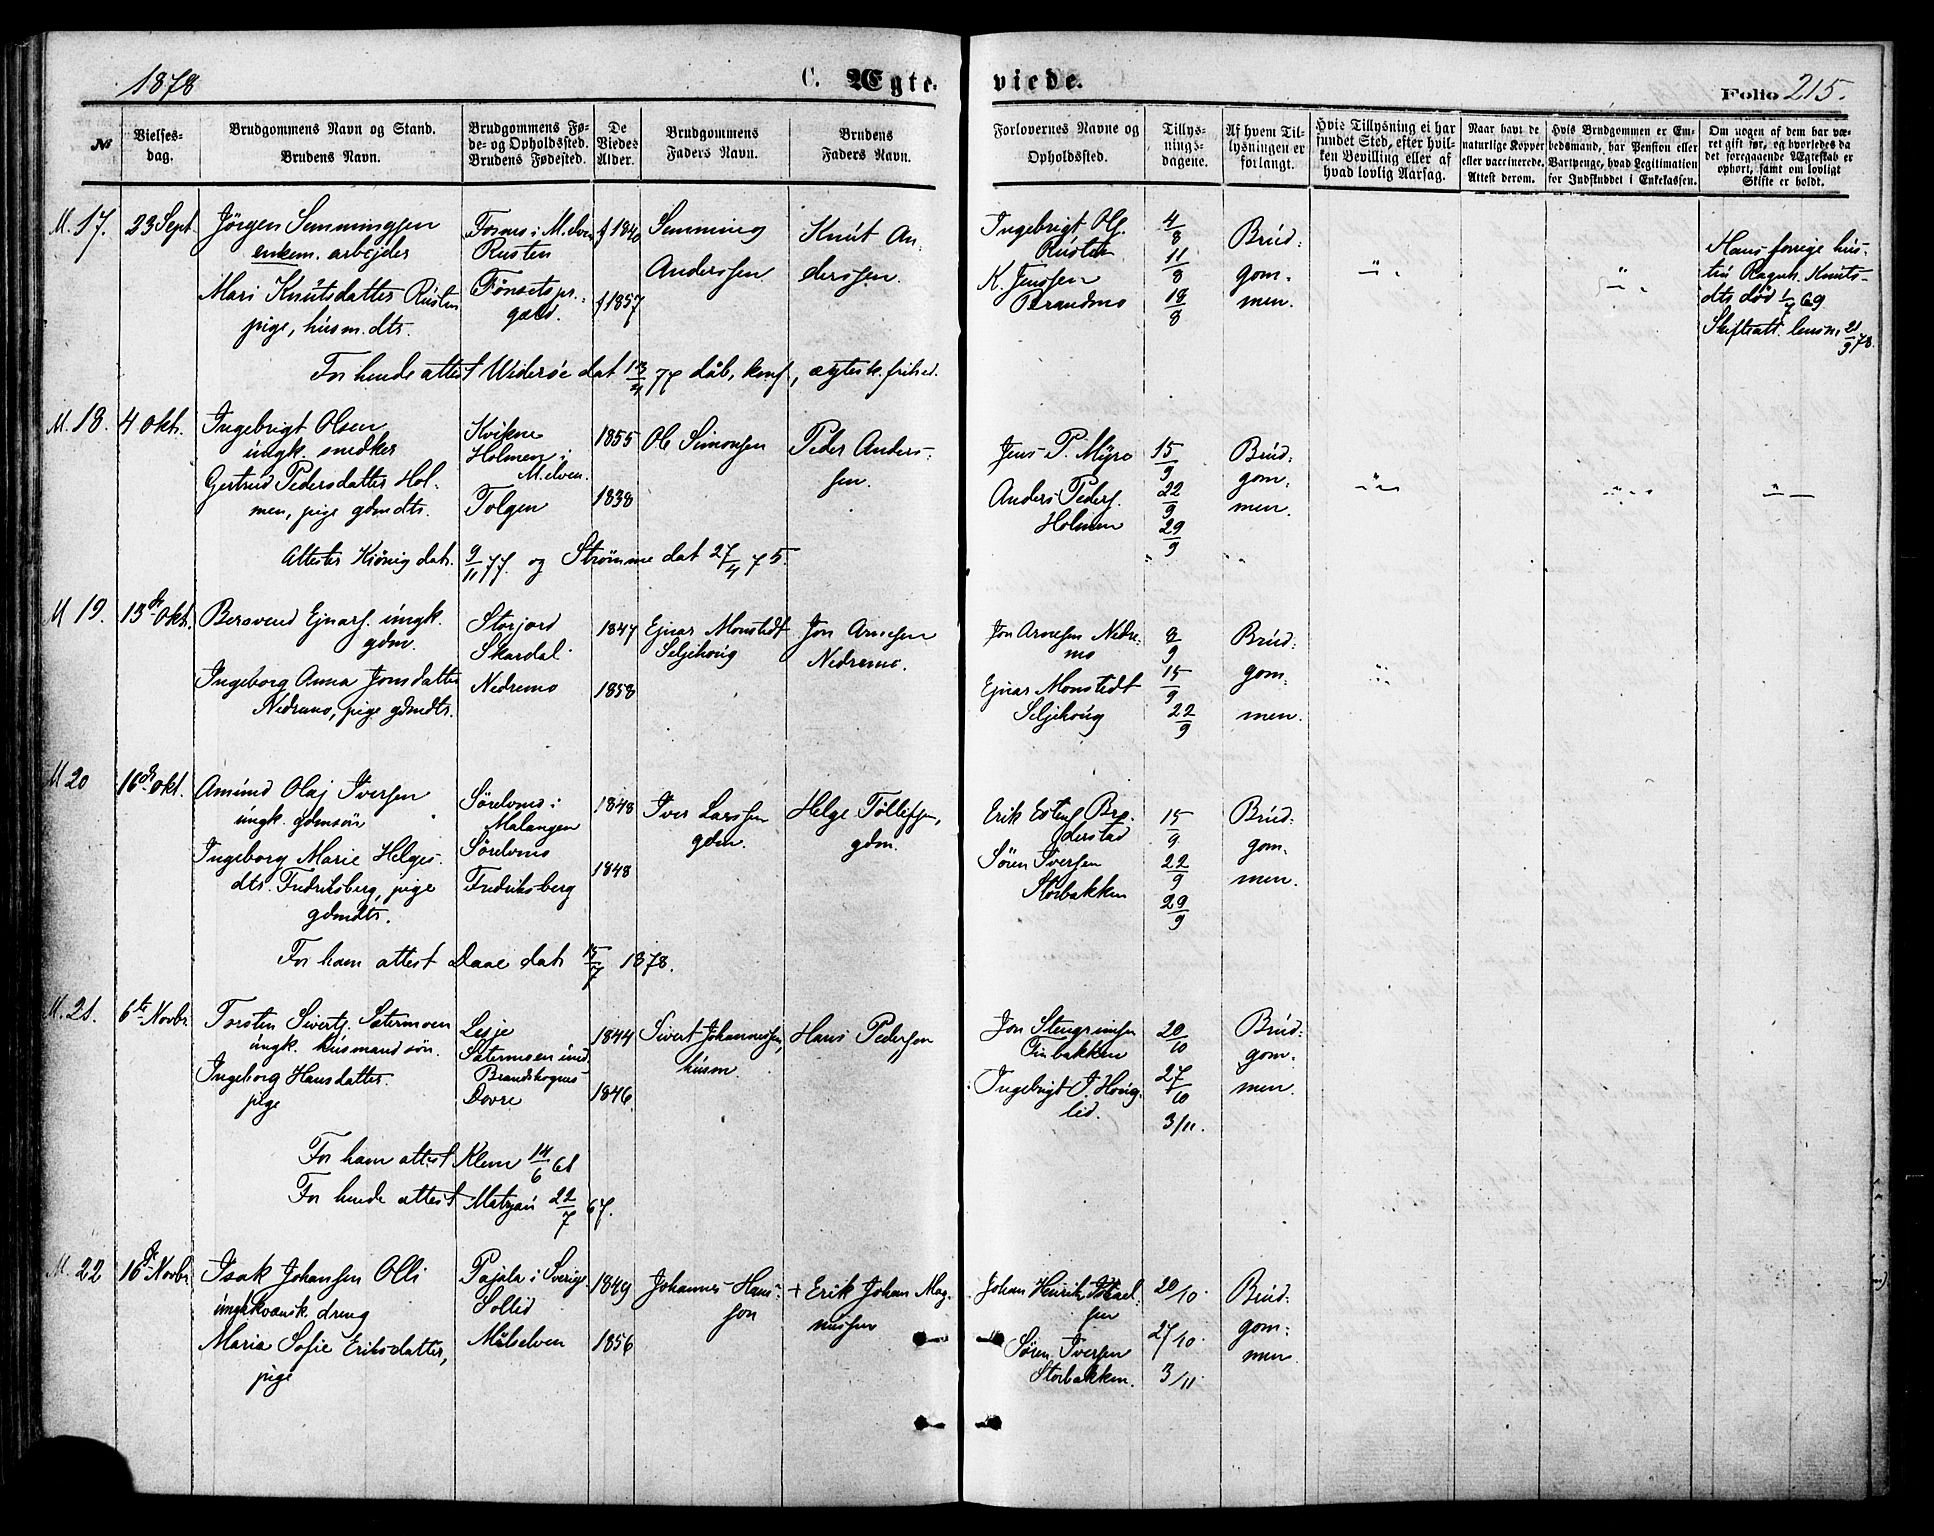 1878
C. Ægte-
viede.
Folio 215.
№
Vielses-
dag.
Brudgommens Navn og Stand.
Brudens Navn.
Brudgommens Fø-
de- og Opholdssted.
Brudens Fødested.
De
Viedes
Alder.
Brudgommens
Faders Navn.
Brudens
Faders Navn.
Forlovernes Navne og
Opholdssted.
Tillys-
nings-
dagene.
Af hvem Til-
lysningen er
forlangt.
Hvis Tillysning ei har
fundet Sted, efter hvil-
ken Bevilling eller af
hvad lovlig Aarsag.
Naar havt de
naturlige Kopper
eller vaccinerede.
Attest derom.
Hvis Brudgommen er Em-
bedsmand, har Pension eller
Vartpenge, hvad Legitimation
for Indskuddet i Enkekassen.
Om nogen af dem har væ-
ret gift før, og hvorledes da
det foregaaende Ægteskab er
ophørt, samt om lovligt
Skifte er holdt.
M. 17.
23 Sept.
Jørgen Semmingsen
enkem. arbejder
Mari Knutsdatter Rusten
pige, husm. dtr.
Rusten
Fønsets pr.
gaed.
f 1840
f 1857
Semming
Anderssen.
Knut An-
derssen.
Ingebrigt Ols.
Rusten
K. Jenssen
Brandmo
4/8
11/8
18/8
Brud-
gom-
men.
Hans forrige hus-
tru Ragnh. Knuts-
dtr død 1/7 69
Skifteatt. lensm. 21/9 78.
For hende attest Widerøe dat 13/4 78 dåb, konf., ægtesk. frihed.
M. 18.
4 Okt.
Ingebrigt Olsen
ungk. snedker
Gertrud Pedersdatter Hol-
men, pige gdmdtr.
Kvikne
Holmen i
M.elven.
Tolgen
1855
1838
Ole Simonsen
Peder Anders-
sen.
Jens P. Myre
Anders Peders.
Holmen
15/9
22/9
29/9
Brud-
gom-
men.
Attester Kiønig dat. 9/11 77. og Strømme dat 27/4 75.
M 19.
13de Okt.
Beravend Ejnars. ungk.
gdm.
Ingeborg Anna Jonsdatter
Nedremo, pige gdmdtr.
Storjord
Skardal
Nedremo
1847
1858
Ejnar Monstedt
Seljehoug
Jon Arnesen
Nedremo.
Jon Arnesen Nedre-
mo
Ejnar Monstedt
Seljehoug
8/9
15/9
22/9
Brud-
gom-
men.
M 20
16de Okt.
Amund Olaj Iversen
ungk. gdmsøn
Ingeborg Marie Helges-
dtr. Fredriksberg, pige
gdmdtr.
Sørelvmo i
Malangen
Sørelvmo
Fredriksberg
1848
1848
Iver Larssen
gdm.
Helge Tollefsen,
gdm.
Erik Estens. Bro-
derstad
Søren Iversen
Storbakken
15/9
22/9
29/9
Brud-
gom-
men.
For ham attest Daae dat 15/7 1878.
M. 21.
6te Novbr.
Torsten Siverts. Sætermoen
ungk. husmandsøn.
Ingeborg Hansdatter.
pige
Lesje
Sætermoen und.
Brandskognes
Dovre
1844
1846.
Sivert Johannessen,
husm.
Hans Pedersen
Jon Stengrimsen
Finbakken
Ingebrigt J. Houg-
lid.
20/10
27/10
3/11.
Brud-
gom-
men.
For ham attest Klem 14/6 61
For hende attest Matzau 22/7 67.
M. 22
16de Novbr
Isak Johansen Olli
ungk. kvænsk dreng
Maria Sofie Eriksdatter,
pige
Pajala i Sverige.
Sollid
Målselven
1849
1856
Johannes Hans-
son
+ Erik Johan Mag-
nussen
Johan Henrik Israel-
sen
Søren Iversen
Storbakken.
20/10.
27/10.
3/11.
Brud-
gom-
men.